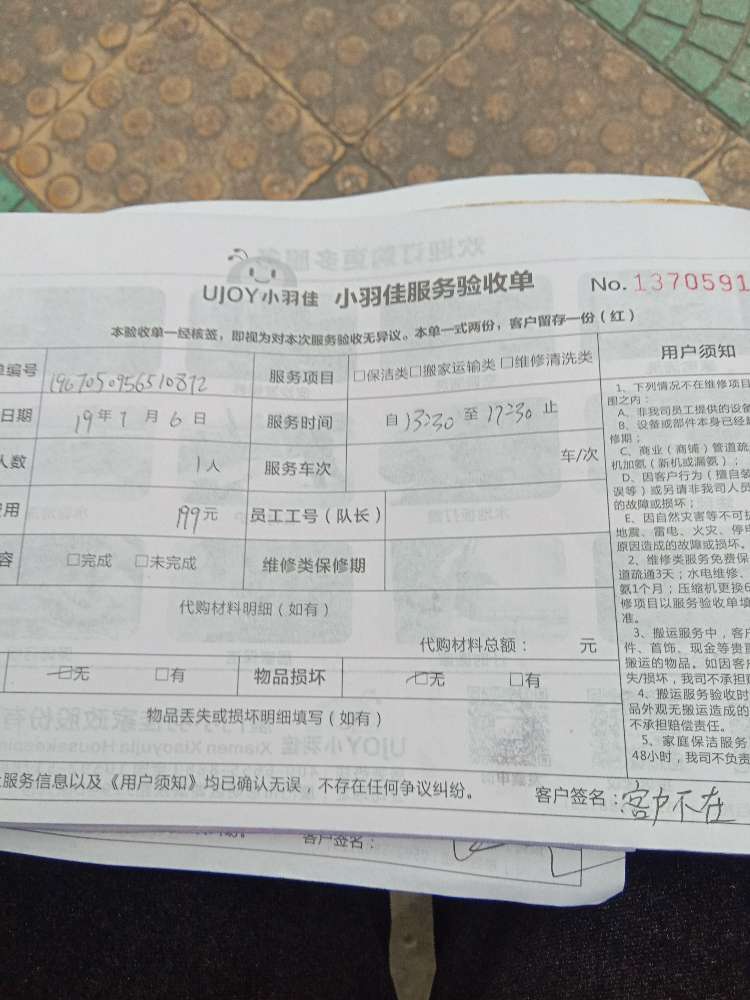 UJOY小羽佳 小羽佳服务验收单 No.1370591
本验收单一经核签，即视为对本次服务验收无异议。本单一式两份，客户留存一份（红）
编号 1967050956510872 服务项目 □保洁类□搬家运输类□维修清洗类
日期 19年7月6日 服务时间 自13:30至17:30止
人数 1人 服务车次 车/次
费用 199元 员工工号（队长）
容 □完成 □未完成 维修类保修期
代购材料明细（如有）
代购材料总额： 元
□无 □有 物品损坏 □无 □有
物品丢失或损坏明细填写（如有）
服务信息以及《用户须知》均已确认无误，不存在任何争议纠纷。 客户签名：客户不在
用户须知
1、下列情况不在维修项目
围之内：
A、非我司员工提供的设备
B、设备或部件本身已经
修期；
C、商业（商铺）管道疏
机加氨（新机或漏氨）；
D、因客户行为（擅自装
误等）或另请非我司人员
的故障或损坏；
E、因自然灾害等不可抗
地震、雷电、火灾、停电
原因造成的故障或损坏。
2、维修类服务免费保
道疏通3天；水电维修、
氨1个月；压缩机更换6
修项目以服务验收单填
准。
3、搬运服务中，客户
件、首饰、现金等贵重
搬运的物品。如因客户
失/损坏，我司不承担
4、搬运服务验收时
品外观无搬运造成的
不承担赔偿责任。
5、家庭保洁服务
48小时，我司不负责
客户签名：